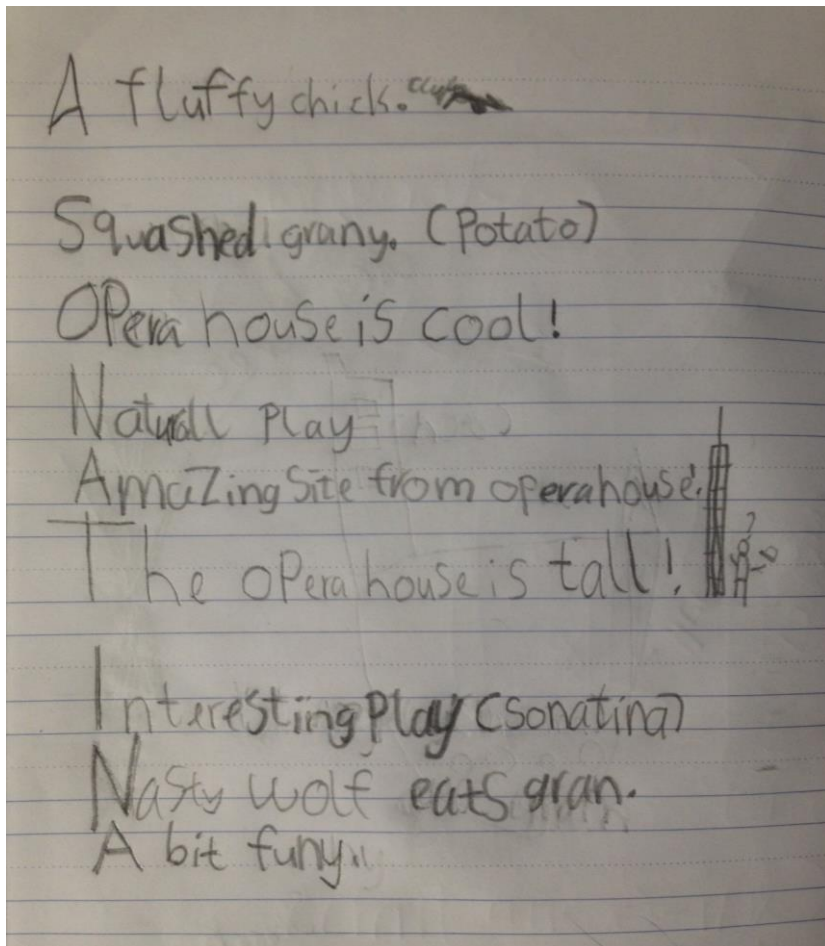 A fluffy chick.
Squashed grany. (Potato)
Opera house is cool!
Naturall play
Amazing site from opera house.
The opera house is tall!
Interesting play (sonatina)
Nasty wolf eats gran.
A bit funy.